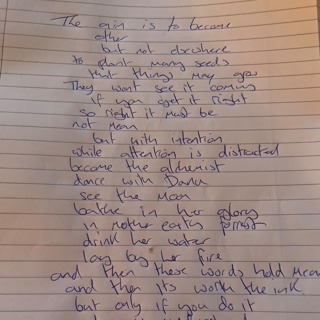 The aim is to become
other
but not elsewhere
to plant many seeds
that things may grow
They wont see it coming
if you get it right
so right it must be
not mean
but with intention
while attention is distracted
become the alchemist
dance with Danu
see the Moon
bathe in her glory
in mother earth forrest
drink her water
lay by her fire
and then these words hold mean
and then its worth the ink
but only if you do it